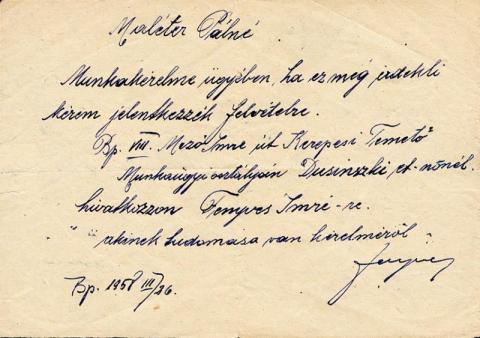 Maléter Pálné
Munkakérelme ügyében, ha ez még érdekli
kérem jelentkezzék felvételre.
Bp. VIII. Mező Imre út Kerepesi Temető
Munkaügyi osztályán Dusinszki et.-nőnél.
hivatkozzon Fenyves Imré-re
akinek tudomása van kérelméről
Bp. 1958 III/26.